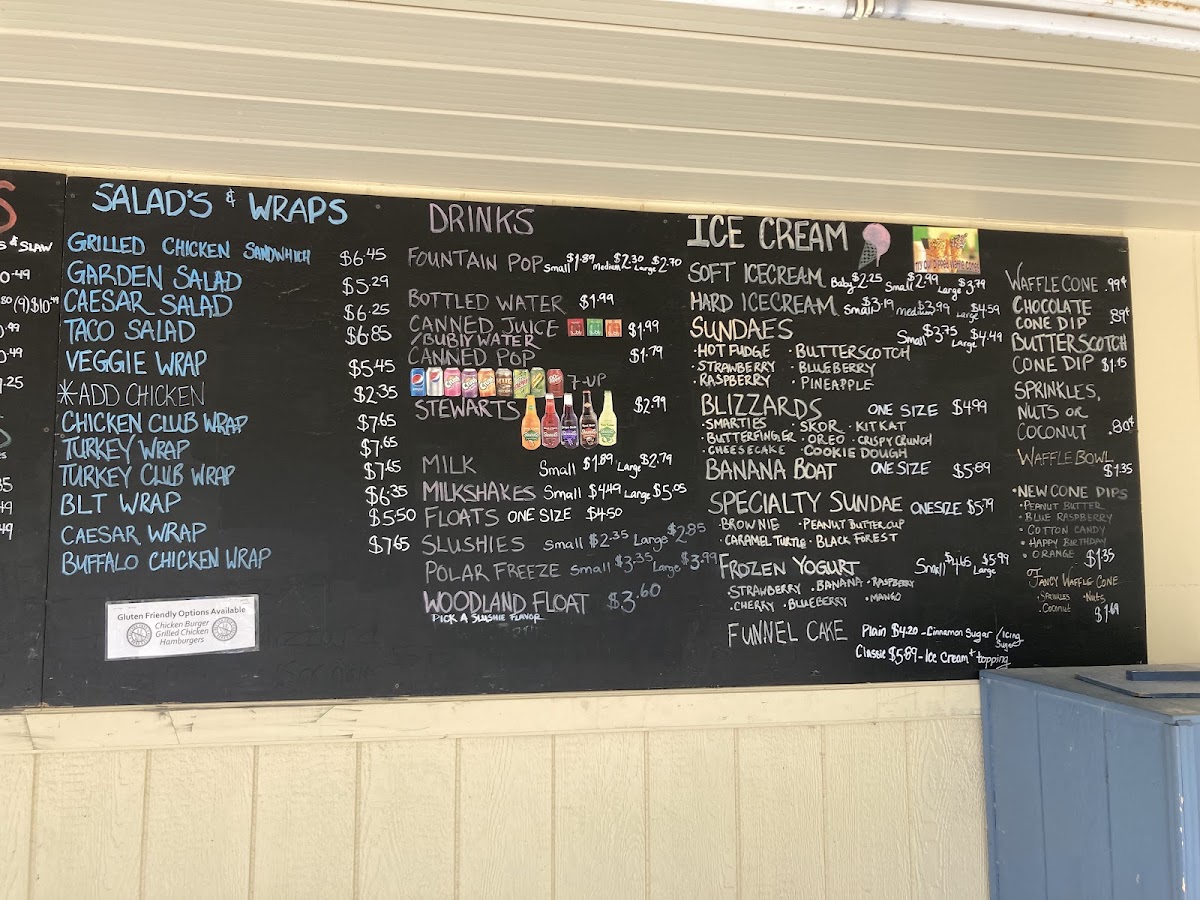 S
S & SLAW
0.49
.80 (9) $10.49
0.49
.25
S
35
49
49
SALAD'S & WRAPS
GRILLED CHICKEN SANDWHICH $6.45
GARDEN SALAD $5.29
CAESAR SALAD $6.25
TACO SALAD $6.85
VEGGIE WRAP $5.45
*ADD CHICKEN $2.35
CHICKEN CLUB WRAP $7.65
TURKEY WRAP $7.65
TURKEY CLUB WRAP $7.65
BLT WRAP $6.35
CAESAR WRAP $5.50
BUFFALO CHICKEN WRAP $7.65
Gluten Friendly Options Available
Chicken Burger
Grilled Chicken
Hamburgers
DRINKS
FOUNTAIN POP Small $1.89 Medium $2.30 Large $2.70
BOTTLED WATER $1.99
CANNED JUICE $1.99
/BUBLY WATER
CANNED POP $1.79
7-UP
STEWARTS $2.99
MILK Small $1.89 Large $2.79
MILKSHAKES Small $4.49 Large $5.05
FLOATS ONE SIZE $4.50
SLUSHIES Small $2.35 Large $2.85
POLAR FREEZE Small $3.35 Large $3.99
WOODLAND FLOAT $3.60
PICK A SLUSHIE FLAVOR
ICE CREAM
SOFT ICECREAM Baby $2.25 Small $2.99 Large $3.79
HARD ICECREAM Small $3.19 Medium $3.99 Large $4.59
SUNDAES Small $3.75 Large $4.49
· HOT FUDGE · BUTTERSCOTCH
· STRAWBERRY · BLUEBERRY
· RASPBERRY · PINEAPPLE
BLIZZARDS ONE SIZE $4.99
· SMARTIES · SKOR · KITKAT
· BUTTERFINGER · OREO · CRISPY CRUNCH
· CHEESECAKE · COOKIE DOUGH
BANANA BOAT ONE SIZE $5.89
SPECIALTY SUNDAE ONE SIZE $5.79
· BROWNIE · PEANUT BUTTER CUP
· CARAMEL TURTLE · BLACK FOREST
FROZEN YOGURT Small $4.65 Large $5.99
STRAWBERRY · BANANA · RASPBERRY
· CHERRY · BLUEBERRY · MANGO
FUNNEL CAKE Plain $4.20 - Cinnamon Sugar / Icing Sugar
Classic $5.89 - Ice Cream + topping
WAFFLE CONE .99¢
CHOCOLATE
CONE DIP .89¢
BUTTERSCOTCH
CONE DIP $1.15
SPRINKLES,
NUTS OR
COCONUT .80¢
WAFFLE BOWL
$1.35
· NEW CONE DIPS
· PEANUT BUTTER
· BLUE RASPBERRY
· COTTON CANDY
· HAPPY BIRTHDAY
· ORANGE $1.35
FANCY WAFFLE CONE
· SPRINKLES · Nuts
· Coconut $1.69